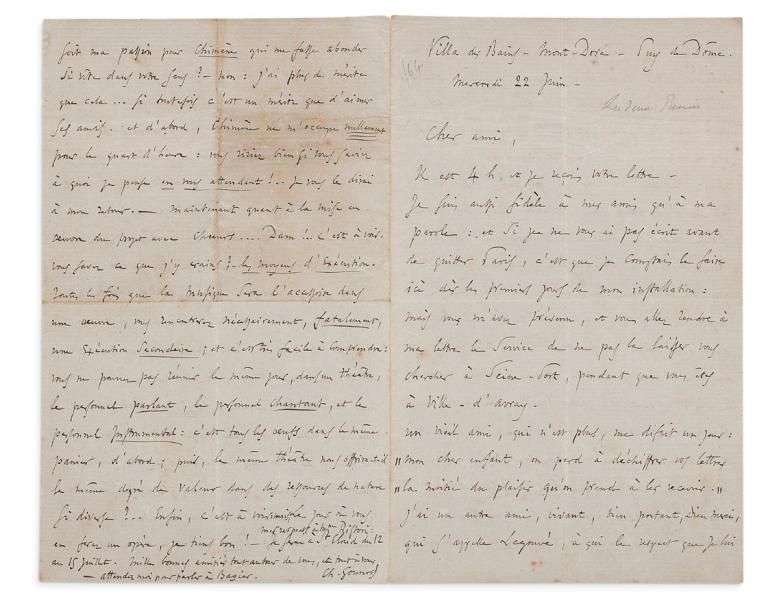 Villa des Bains - Mont-Dore - Puy de Dôme.
Mercredi 22 Juin -
Cher ami,
Il est 4 h. et je reçois votre lettre -
Je suis aussi fidèle à mes amis qu'à ma
parole : et si je ne vous ai pas écrit avant
de quitter Paris, c'est que je comptais le faire
ici dès les premiers jours de mon installation :
mais vous m'avez prévenu, et vous allez rendre à
ma lettre le service de ne pas la laisser vous
chercher à Seine-Port, pendant que vous êtes
à Ville-d'avray.
un vieil ami, qui n'est plus, me disait un jour :
"mon cher enfant, on perd à déchiffrer vos lettres
"la moitié du plaisir qu'on prend à les recevoir."
J'ai un autre ami, vivant, bien portant, Dieu merci,
qui s'appelle Legouvé, à qui le respect que je lui
soit ma passion pour Chimène qui me fasse abonder
si vite dans votre sens ? - non : j'ai plus de mérite
que cela... si toutefois c'est un mérite que d'aimer
ses amis. et d'abord, Chimène ne m'occupe nullement
pour le quart d'heure : vous ririez bien si vous saviez
à quoi je pense en vous attendant !.. Je vous le dirai
à mon retour. — maintenant quant à la mise en
oeuvre du projet avec Choeurs.... Dam !.. c'est à voir.
vous savez ce que j'y crains ? les moyens d'Exécution.
Toutes les fois que la musique sera l'accessoire dans
une oeuvre, vous rencontrerez nécessairement, fatalement,
une Exécution secondaire ; et c'est très facile à comprendre :
vous ne pouvez pas réunir le même jour, dans un théâtre,
le personnel parlant, le personnel chantant, et le
personnel Instrumental : c'est tous les oeufs dans le même
panier, d'abord ; puis, le même théâtre nous offrirait-il
le même degré de valeur dans des ressources de nature
si diverse ?.. Enfin, c'est à voir
en faire un opéra, je tiens bon ! — Je serai à St Cloud du 12
au 15 Juillet. Mille bonnes amitiés tout autour de vous, et tout à vous,
— attendez moi pour parler à Bagier. Ch. Gounod